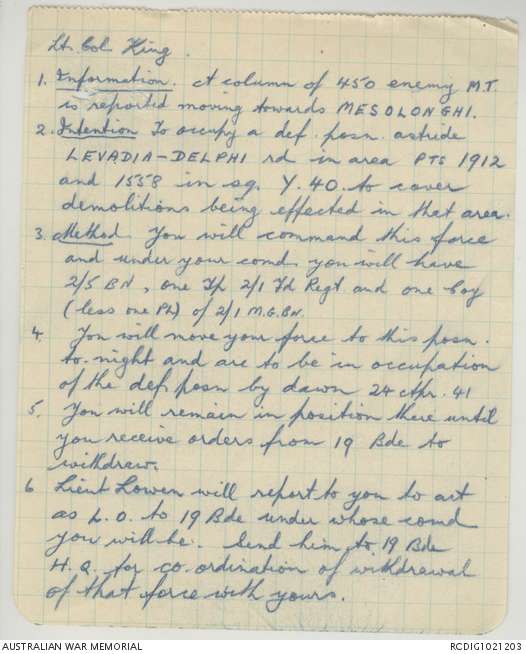 Lt. Col King.
1. Information. A column of 450 enemy M.T.
is reported moving towards MESOLONGHI.
2. Intention To occupy a def. posn. astride
LEVADIA-DELPHI rd in area PTS 1912
and 1558 in sq. Y.40. to cover
demolitions being effected in that area.
3. Method You will command this force
and under your comd you will have
2/5 BN, one Tp 2/1 Fd Regt and one Coy
(less one Pl) of 2/1 M.G.BN.
4. You will move your force to this posn.
to-night and are to be in occupation
of the def posn by dawn 24 Apr. 41
5. You will remain in position there until
you receive orders from 19 Bde to
withdraw.
6 Lieut Lowen will report to you to act
as L.O. to 19 Bde under whose comd
you will be. Send him to 19 Bde
H.Q. for co.ordination of withdrawal
of that force with yours.
AUSTRALIAN WAR MEMORIAL
RCDIG1021203